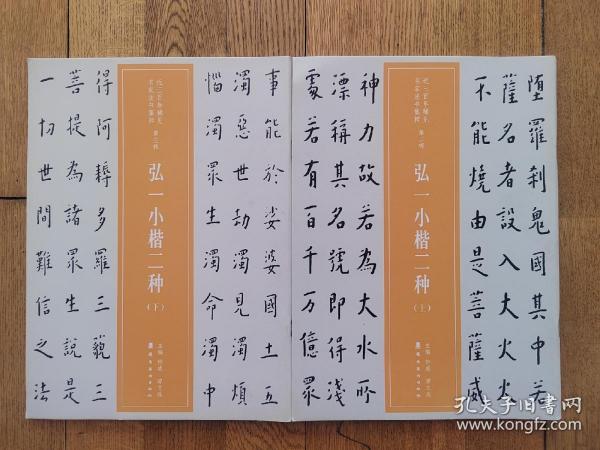 堕羅刹鬼國其中若
薩名者設入大火火
不能燒由是菩薩威
名家法书集粹
弘一小楷二种(上)
主编
神力故若為大水所
漂稱其名號即得淺
處若有百千万億眾
事能於娑婆國土五
濁惡世劫濁見濁煩
惱濁眾生濁命濁中
名家法书集粹
弘一小楷二种(下)
主编
得阿耨多羅三藐三
菩提為諸眾生說是
一切世間難信之法
孔夫子旧书网
www.kongfz.com